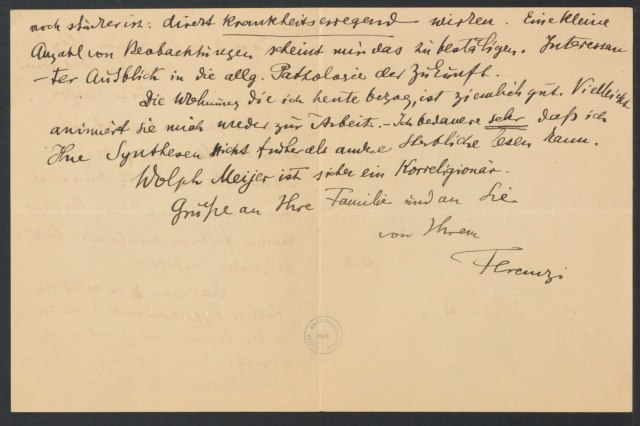 noch stärker ist: direkt krankheitserregend wirken. Eine kleine
Anzahl von Beobachtungen scheint mir das zu bestätigen. Interessan-
-ter Ausblick in die allg. Pathologie der Zukunft.
Die Wohnung die ich heute bezog, ist ziemlich gut. Vielleicht
animiert sie mich wieder zur Arbeit. - Ich bedauere sehr daß ich
Ihre Synthesen nicht früher als andre Sterbliche lesen kann.
Wolph Meijer ist sicher ein Korreligionär.
Grüße an Ihre Familie und an Sie
von Ihrem
Ferenczi